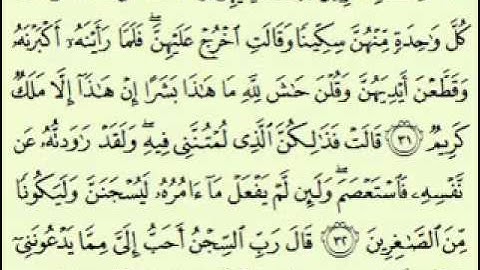 كُلَّ وَٰحِدَةٍ مِّنْهُنَّ سِكِّينًا وَقَالَتِ ٱخْرُجْ عَلَيْهِنَّ ۖ فَلَمَّا رَأَيْنَهُۥٓ أَكْبَرْنَهُۥ
وَقَطَّعْنَ أَيْدِيَهُنَّ وَقُلْنَ حَٰشَ لِلَّهِ مَا هَٰذَا بَشَرًا إِنْ هَٰذَآ إِلَّا مَلَكٌ
كَرِيمٌ ٣١ قَالَتْ فَذَٰلِكُنَّ ٱلَّذِى لُمْتُنَّنِى فِيهِ ۖ وَلَقَدْ رَٰوَدتُّهُۥ عَن
نَّفْسِهِۦ فَٱسْتَعْصَمَ ۖ وَلَئِن لَّمْ يَفْعَلْ مَآ ءَامُرُهُۥ لَيُسْجَنَنَّ وَلَيَكُونًا
مِّنَ ٱلصَّٰغِرِينَ ٣٢ قَالَ رَبِّ ٱلسِّجْنُ أَحَبُّ إِلَىَّ مِمَّا يَدْعُونَنِىٓ